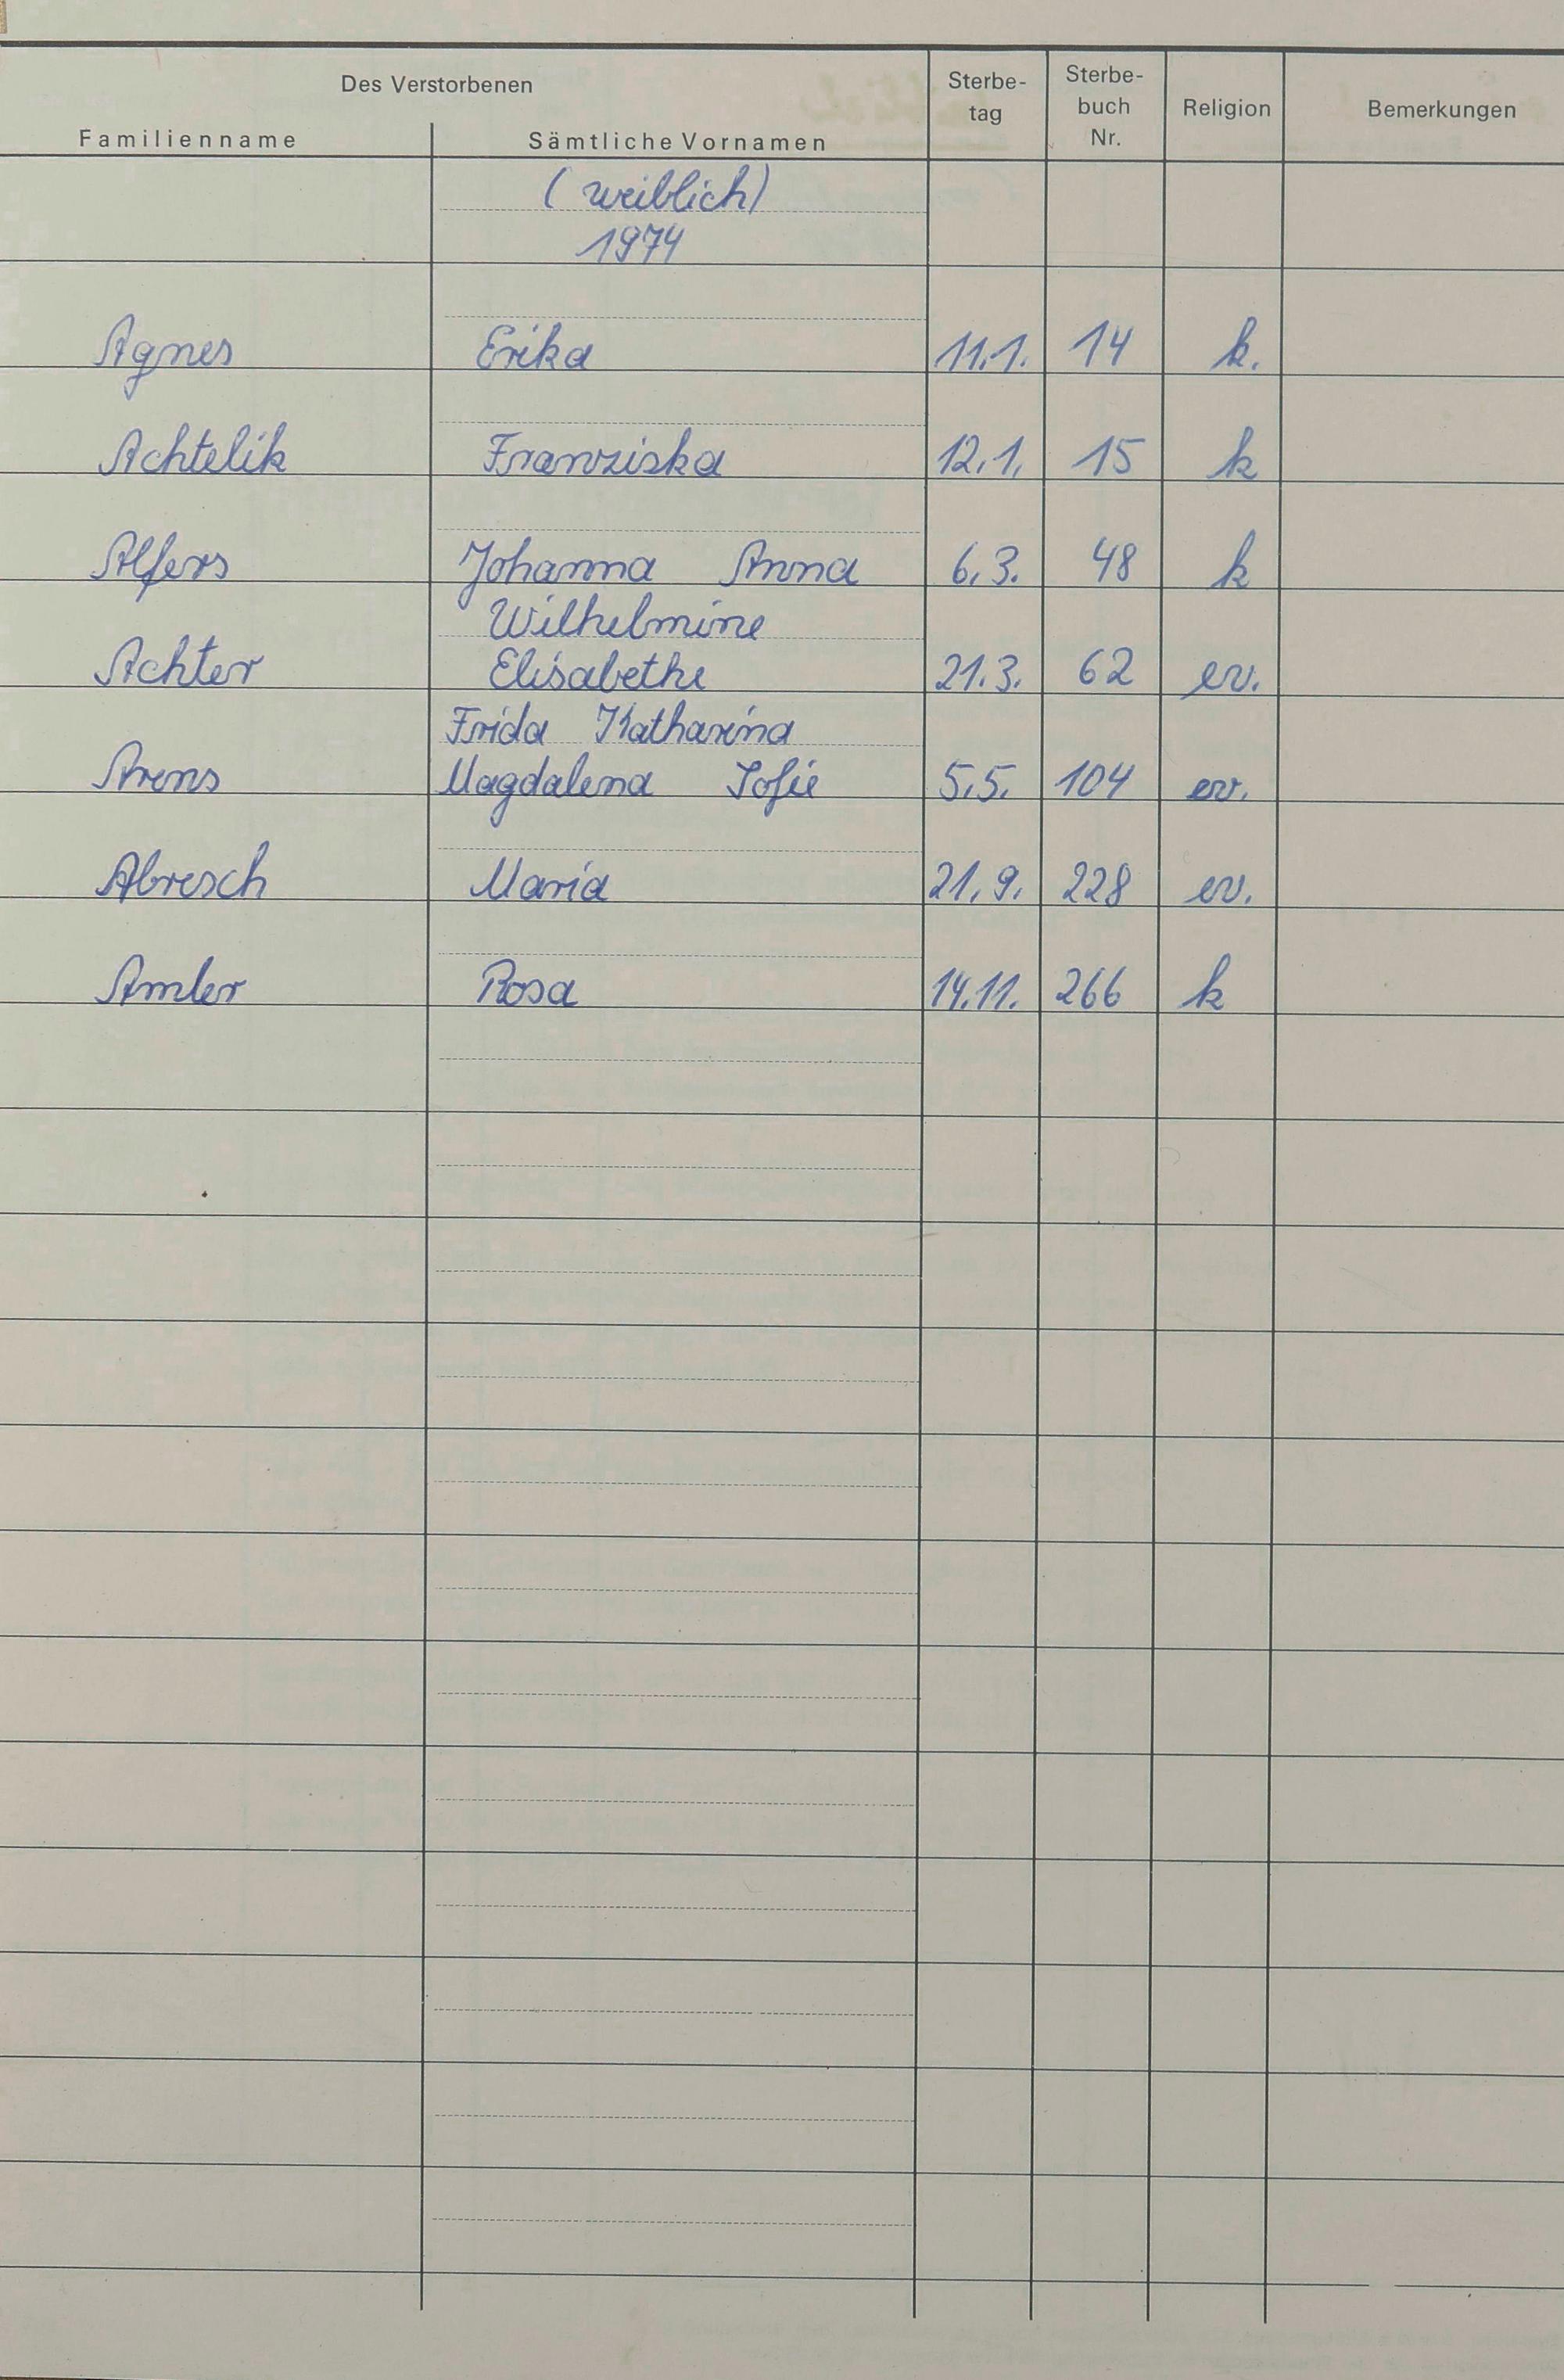 Des Verstorbenen
Familienname Sämtliche Vornamen Sterbe-tag Sterbe-buch Nr. Religion Bemerkungen
(weiblich)
1974
Agnes Erika 11.1. 14 k.
Achtelik Franziska 12.1. 15 k
Alfers Johanna Anna 6.3. 48 k
Wilhelmine
Achter Elisabethe 21.3. 62 ev.
Frida Katharina
Arens Magdalena Sofie 5.5. 104 ev.
Abresch Maria 21.9. 228 ev.
Amler Rosa 14.11. 266 k